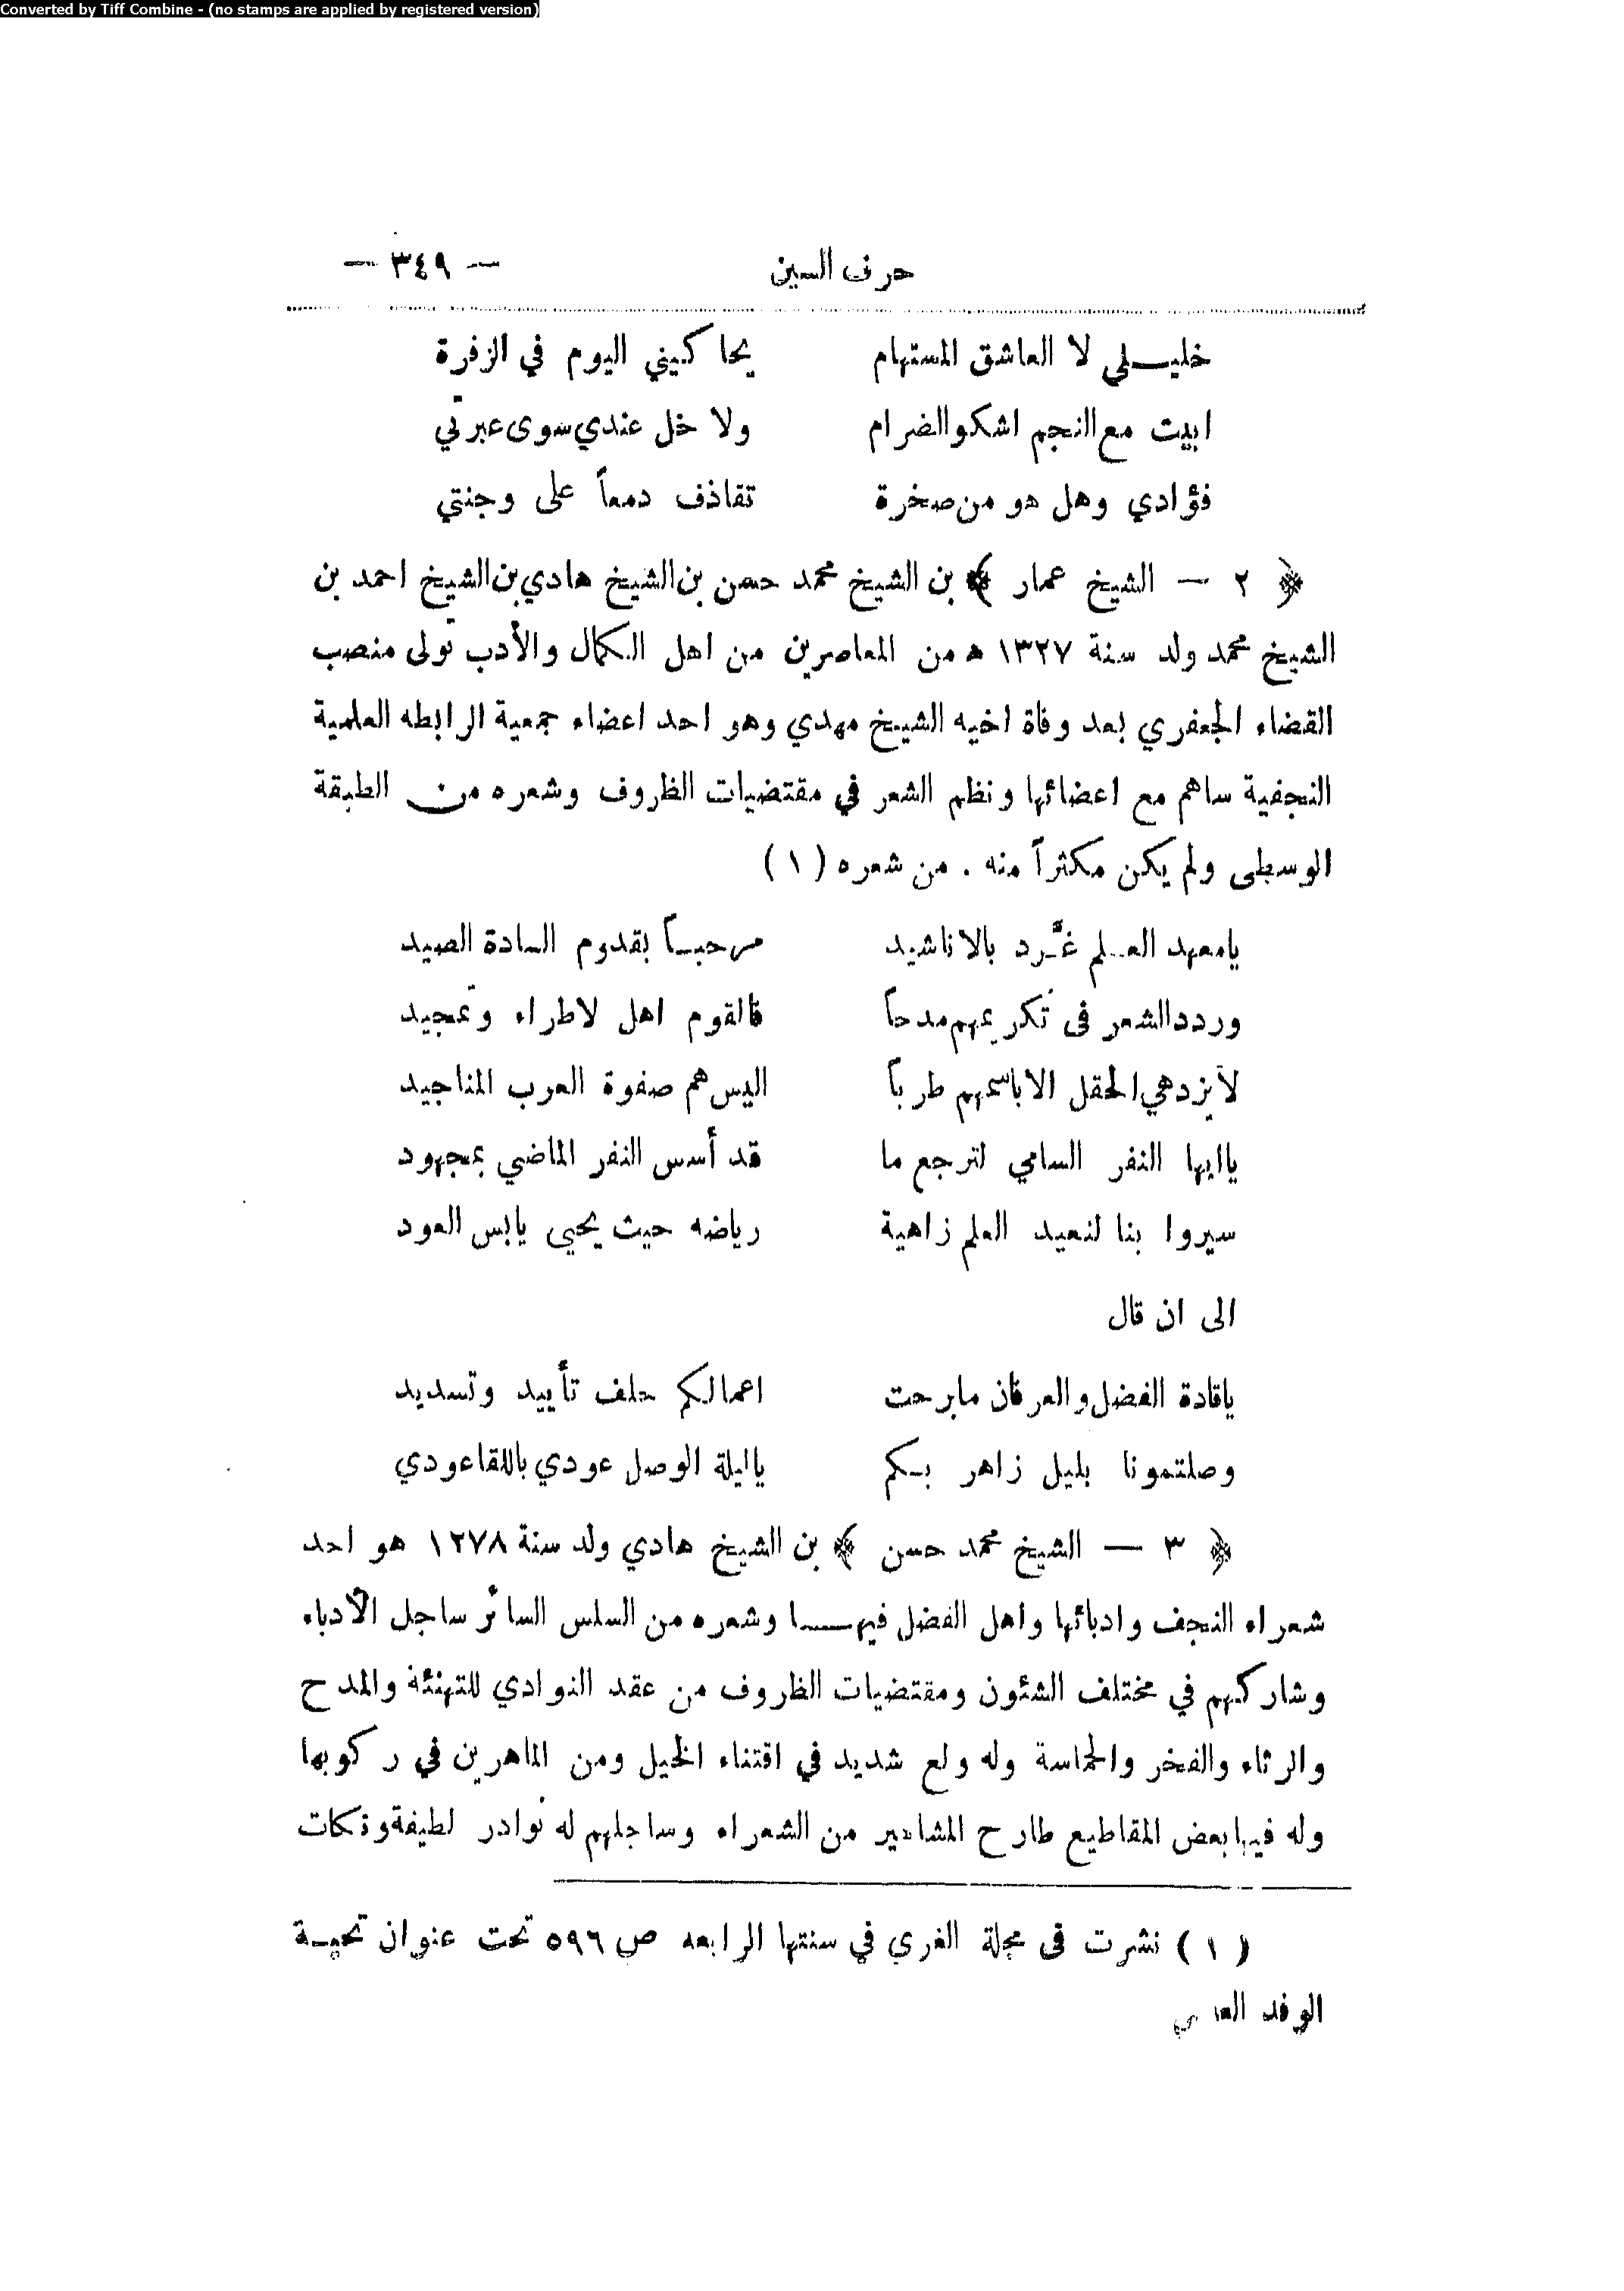 Converted by Tiff Combine - (no stamps are applied by registered version)
حرف السين — ٣٤٩ —
خليلي لا العاشق المستهام يحاكيني اليوم في الزفرة
ابيت مع النجم اشكو الضرام ولا خل عندي سوى عبرتي
فؤادي وهل هو من صخرة تقاذف دمعاً على وجنتي
﴿ ٢ — الشيخ عمار ﴾ بن الشيخ محمد حسن بن الشيخ هادي بن الشيخ احمد بن
الشيخ محمد ولد سنة ١٣٢٧ ه من المعاصرين من اهل الكمال والأدب تولى منصب
القضاء الجعفري بعد وفاة اخيه الشيخ مهدي وهو احد اعضاء جمعية الرابطه العلمية
النجفية ساهم مع اعضائها ونظم الشعر في مقتضيات الظروف وشعره من الطبقة
الوسطى ولم يكن مكثراً منه . من شعره ( ١ )
يامعهد العلم غرّد بالاناشيد مرحباً بقدوم السادة الصيد
وردد الشعر فى تكريمهم مدحاً فالقوم اهل لاطراء وتمجيد
لايزدهي الحقل الا باسمهم طرباً اليس هم صفوة العرب المناجيد
ياايها النفر السامي لترجع ما قد أسس النفر الماضي بمجهود
سيروا بنا لنعيد العلم زاهية رياضه حيث يحيى يابس العود
الى ان قال
ياقادة الفضل والعرفان مابرحت اعمالكم حلف تأييد وتسديد
وصلتمونا بليل زاهر بكم ياليلة الوصل عودي باللقا عودي
﴿ ٣ — الشيخ محمد حسن ﴾ بن الشيخ هادي ولد سنة ١٢٧٨ هو احد
شعراء النجف وادبائها واهل الفضل فيها وشعره من السلس السائر ساجل الأدباء
وشاركهم في مختلف الشئون ومقتضيات الظروف من عقد النوادي للتهنئة والمدح
والرثاء والفخر والحماسة وله ولع شديد في اقتناء الخيل ومن الماهرين في ركوبها
وله فيها بعض المقاطيع طارح المشاهير من الشعراء وساجلهم له نوادر لطيفة ونكات
( ١ ) نشرت فى مجلة الغري في سنتها الرابعه ص ٥٩٦ تحت عنوان تحية
الوفد